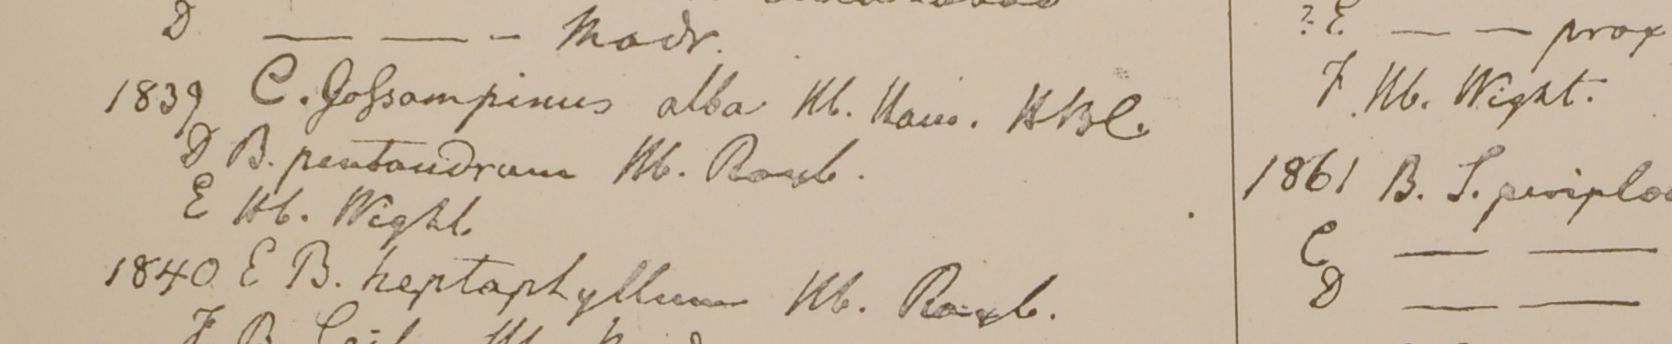 D — — - Madr.
1839 C. Gossampinus alba Hb. Ham. HBC.
D B. pentandrum Hb. Roxb.
E Hb. Wight.
1840 E B. heptaphyllum Hb. Roxb.
F B.
?E — — prox
F Hb. Wight.
1861 B. S. periploc
C — —
D — —